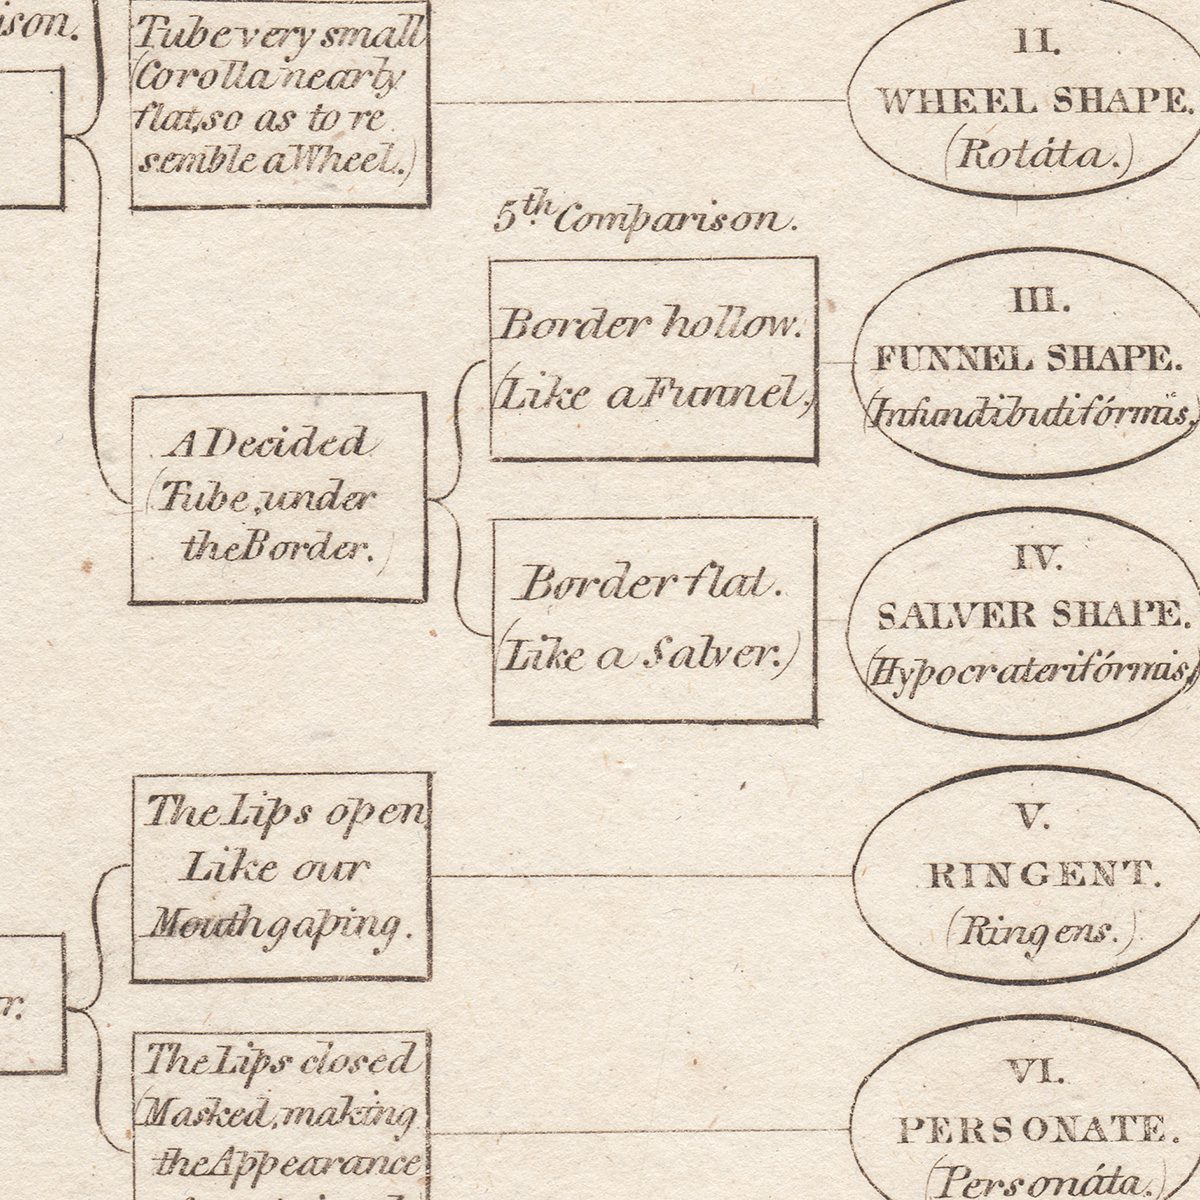 ison.
Tube very small
(Corolla nearly
flat, so as to re
semble a Wheel.)
II.
WHEEL SHAPE.
(Rotáta.)
5th Comparison.
Border hollow.
(Like a Funnel.)
III.
FUNNEL SHAPE.
(Infundibulifórmis.
A Decided
(Tube, under
the Border.)
Border flat.
(Like a Salver.)
IV.
SALVER SHAPE.
(Hypocraterifórmis.)
The Lips open
Like our
Mouth gaping.
V.
RINGENT.
(Ringens.)
r.
The Lips closed
(Masked, making
the Appearance
VI.
PERSONATE.
(Personáta.)